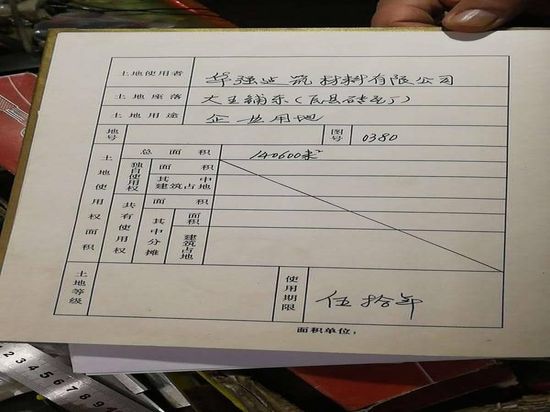 土地使用者 华强建筑材料有限公司
土地座落 大王铺东(瓦县砖瓦厂)
土地用途 企业用地
地号 图号 0380
土地使用权面积
总面积 140600米²
独自使用权 面积
其中建筑占地
共有使用权 面积
其中分摊 面积
建筑占地
土地等级 使用期限 伍拾年
面积单位:
1 2 3 4 5 6 7 8 9